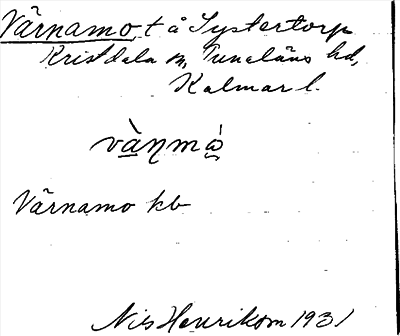 Värnamo, t å Systertorp
Kristdala sn, Tunaläns hd,
Kalmar l.
vàṇmå̀
Värnamo kb
Nils Henrikson 1931